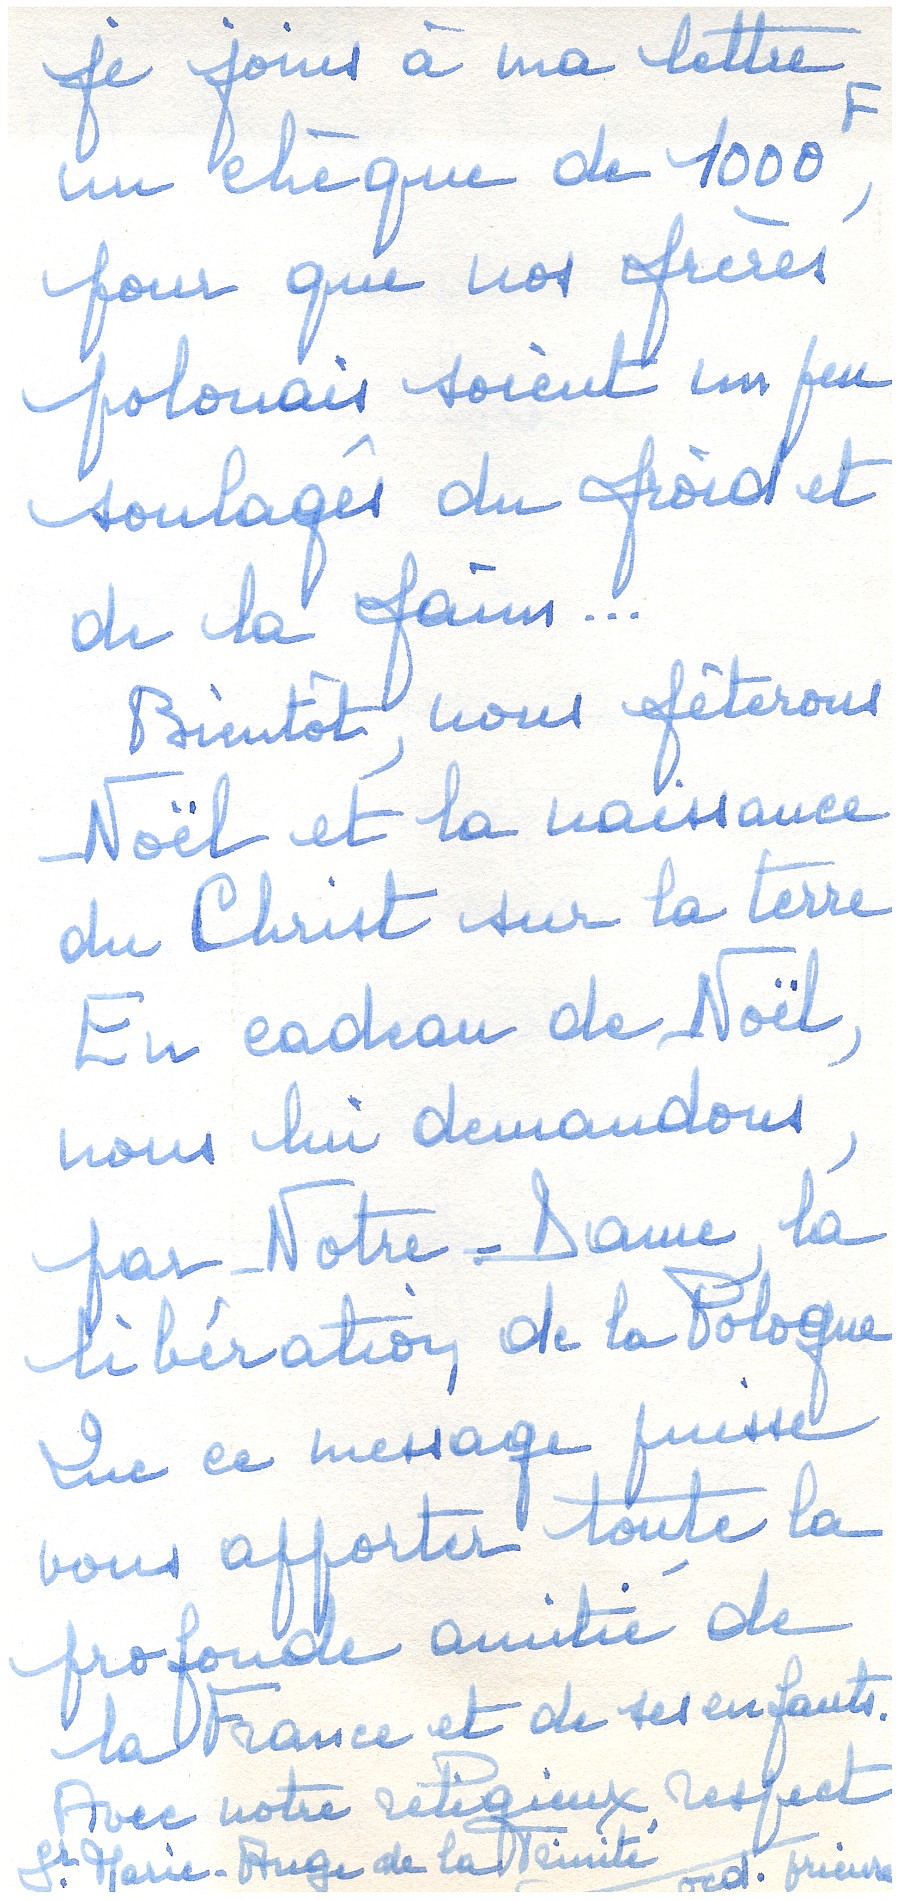 je joins à ma lettre
un chèque de 1000 F,
pour que nos frères
polonais soient un peu
soulagés du froid et
de la faim...
Bientôt, nous fêterons
Noël et la naissance
du Christ sur la terre
En cadeau de Noël,
nous lui demandons,
par Notre-Dame, la
libération de la Pologne
Que ce message puisse
vous apporter toute la
profonde amitié de
la France et de ses enfants.
Avec notre religieux respect
Sr. Marie-Ange de la Trinité
ocd. prieure